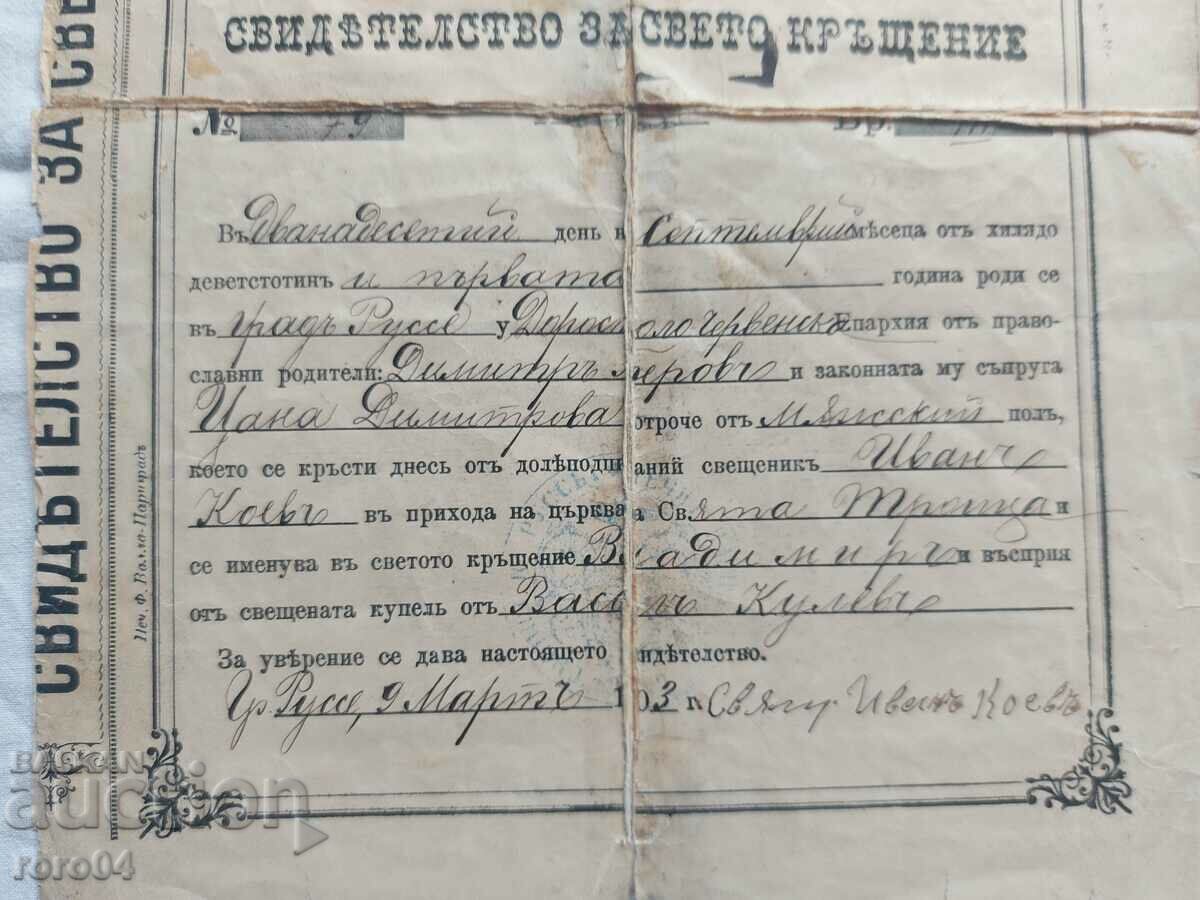 СВИДѢТЕЛСТВО ЗА СВЕТО КРЪЩЕНИЕ
№ 79
Бр.
Въ Дванадесетий день н Септемврий мѣсеца отъ хилядо
деветстотинъ и първата година роди се
въ градъ Руссе у Доростоло Червенск Епархия отъ право-
славни родители: Димитръ Перовъ и законната му съпруга
Цана Димитрова отроче отъ Мѫжский полъ,
което се кръсти днесь отъ долѣподписаний свещеникъ Иванъ
Коевъ въ прихода на църква Свята Троица и
се именува въ светото кръщение Владимиръ и въсприя
отъ свещената купель отъ Василъ Кулевъ
За увѣрение се дава настоящето свидѣтелство.
Гр. Руссе, 9 Мартъ 1903 г. Свящ. Иванъ Коевъ
СВИДѢТЕЛСТВО ЗА СВЕ
Печ. Ф. Валла-Париградъ
BALKAN
auction
roro04